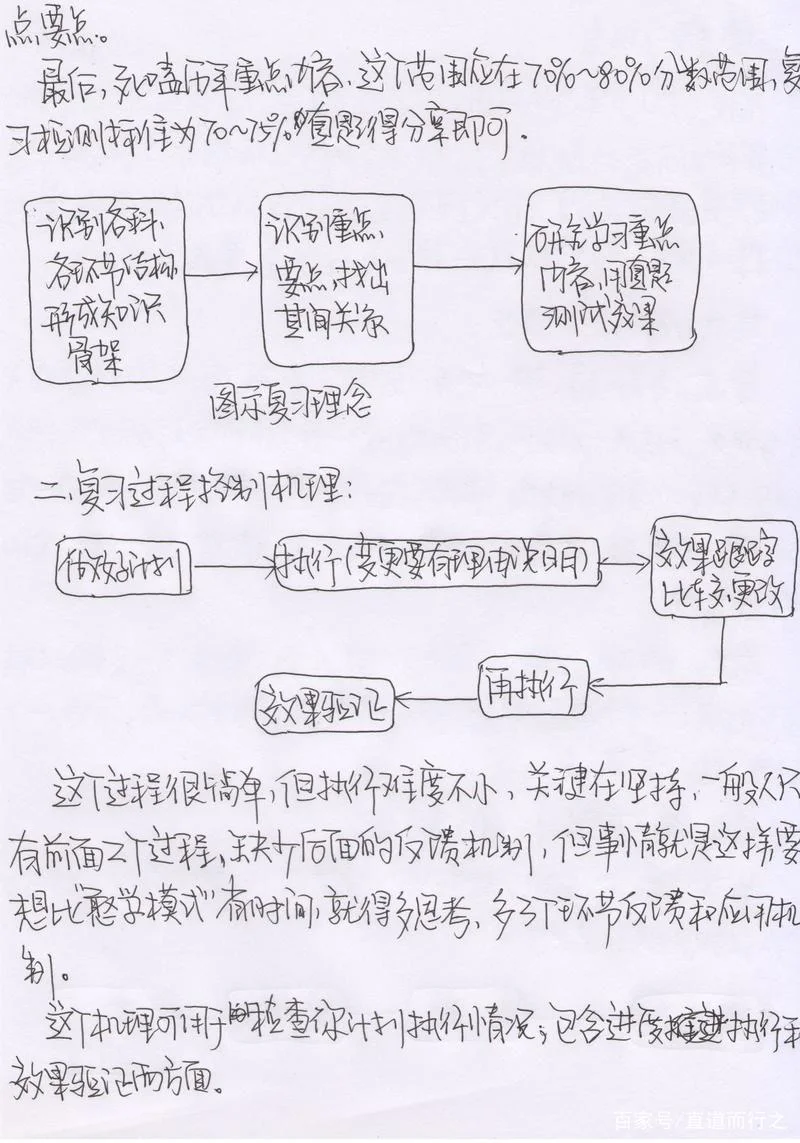 点要点。
最后，死嗑历年重点内容，这个范围应在70%~80%分数范围，复
习检测标准为70~75%的真题得分率即可。
识别各科、
各环节结构
形成知识
骨架
识别重点、
要点，找出
其间关系
研究学习重点
内容，用真题
测试效果
图示复习理念
二.复习过程控制机理：
做好计划
执行(变更要有理由说明)
效果跟踪
比较、更改
再执行
效果验证
这个过程很简单，但执行难度不小，关键在坚持，一般人只
有前面二个过程，缺少后面的反馈机制，但事情就是这样要
想比“憨学模式”省时间，就得多思考，多了个环节反馈和应用机
制。
这个机理可用于检查你计划执行情况；包含进度推进执行和
效果验证两方面。
百家号/直道而行之